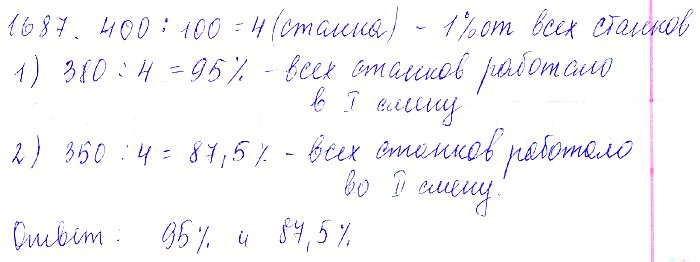 1687. 400 : 100 = 4 (станка) - 1% от всех станков
1) 380 : 4 = 95% - всех станков работало
в I смену
2) 350 : 4 = 87,5% - всех станков работало
во II смену.
Ответ: 95% и 87,5%